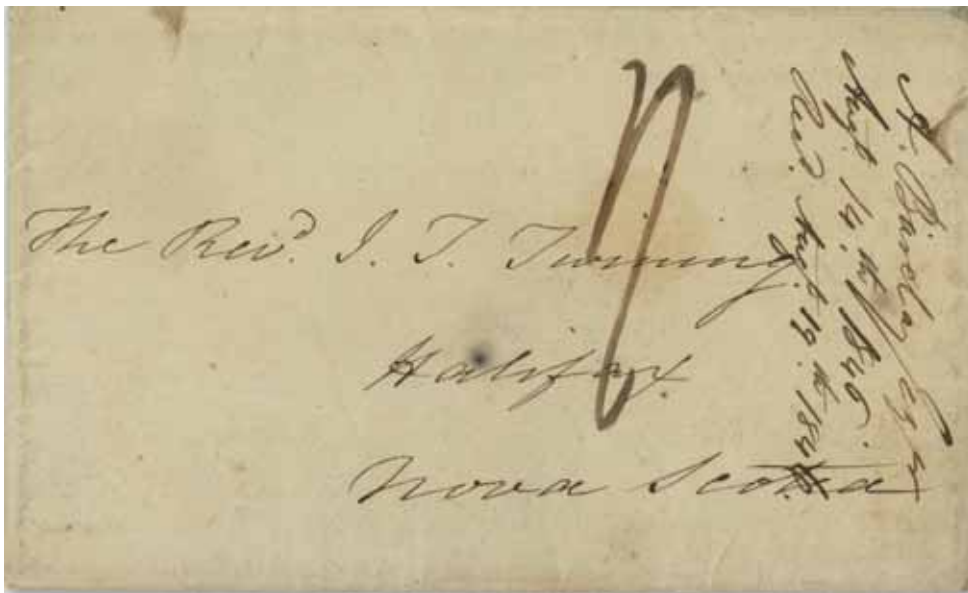 The Revd. J. T. Twining
Halifax.
Nova Scotia
A. Barclay Esq
Augt. 14.th 1846.
Recd. Augt. 19.th 1846